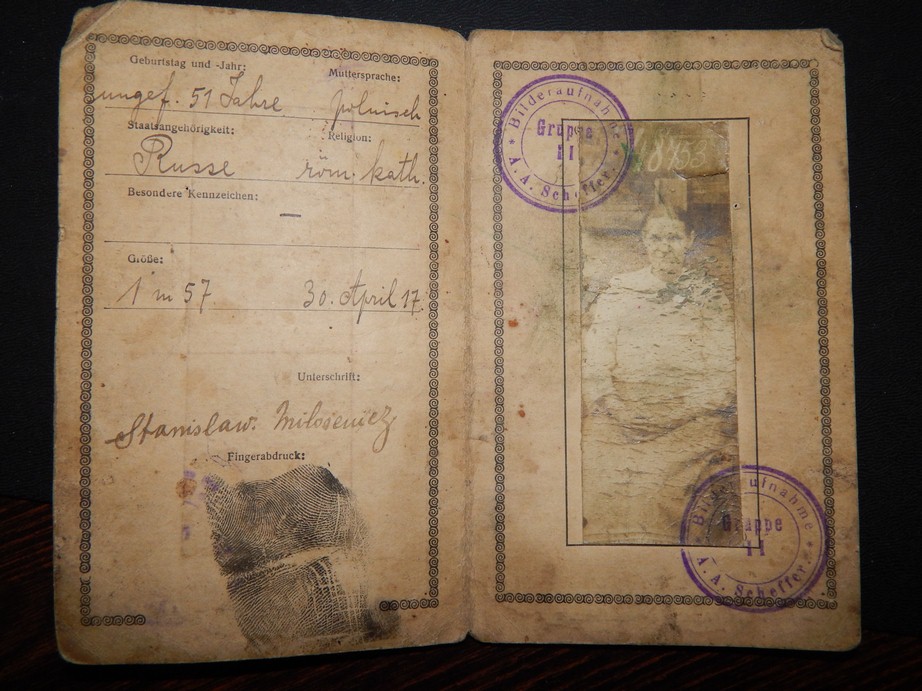 Geburtstag und -Jahr: Muttersprache:
ungef. 51 Jahre polnisch
Staatsangehörigkeit: Religion:
Russe röm. kath.
Besondere Kennzeichen:
—
Größe:
1 m 57 30. April 17.
Unterschrift:
Stanislaw
Fingerabdruck:
Bilderaufnahme
Gruppe
II
A. A. Scheffer.
18753
Bilderaufnahme
Gruppe
II
A. A. Scheffer.